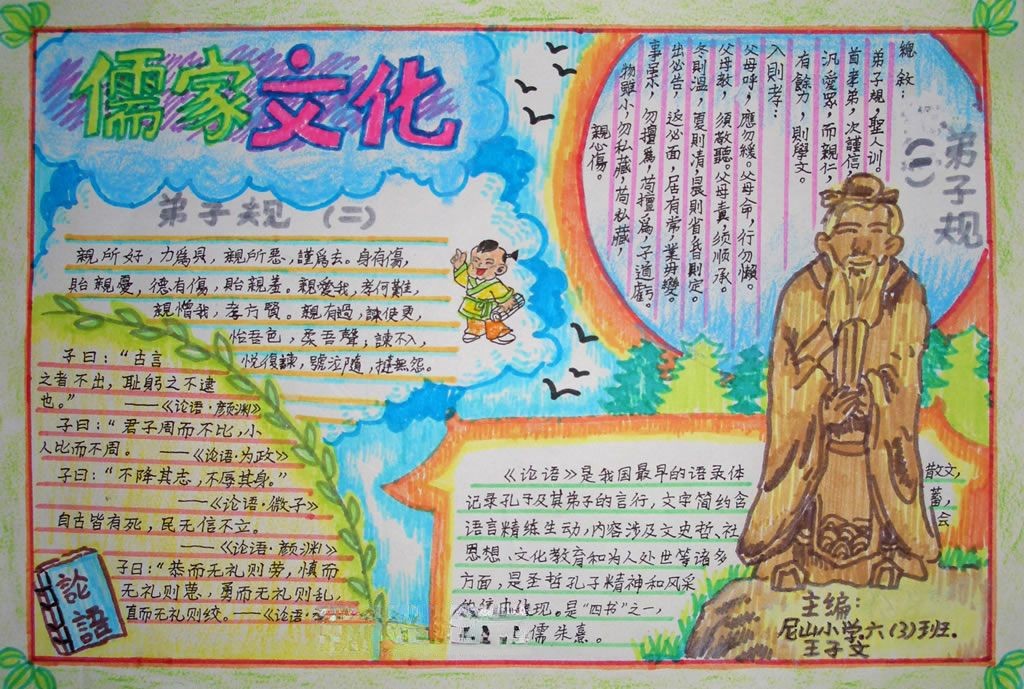 儒家文化
弟子规（二）
親所好，力爲具，親所惡，謹爲去。身有傷，
貽親憂，德有傷，貽親羞。親愛我，孝何難，
親憎我，孝方賢。親有過，諫使更，
怡吾色，柔吾聲，諫不入，
悅復諫，號泣隨，撻無怨。
子曰：“古言
之者不出，耻躬之不逮
也。”——《论语·颜渊》
子曰：“君子周而不比，小
人比而不周。——《论语·为政》
子曰：“不降其志，不辱其身。”
——《论语·微子》
自古皆有死，民无信不立。
——《论语·颜渊》
子曰：“恭而无礼则劳，慎而
无礼则葸，勇而无礼则乱，
直而无礼则绞。——《论语·
論語
弟子规
（一）
總敘：
弟子規，聖人訓。
首孝弟，次謹信，
汎愛眾，而親仁，
有餘力，則學文。
入則孝：
父母呼，應勿緩。父母命，行勿懶。
父母教，須敬聽。父母責，须顺承。
冬則溫，夏則凊，晨則省，昏則定。
出必告，返必面，居有常，業毋變。
事雖小，勿擅爲，苟擅爲，子道虧。
物雖小，勿私藏，苟私藏，
親心傷。
《论语》是我国最早的语录体 散文，
记录孔子及其弟子的言行，文字简约含 蓄，
语言精练生动，内容涉及文史哲、社 会
思想、文化教育和为人处世等诸多
方面，是圣哲孔子精神和风采
现。是“四书”之一，
儒朱熹。
主编：
尼山小学.六（3）班.
王子文